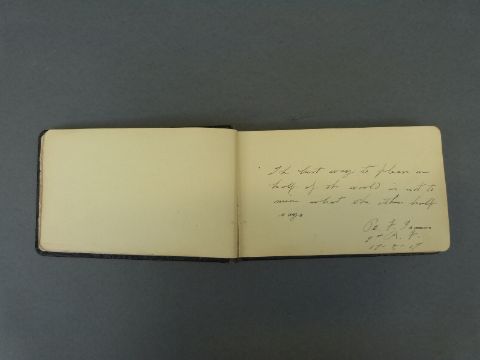 The best way to please one
half of the world is not to
mind what the other half
says
Pte F.